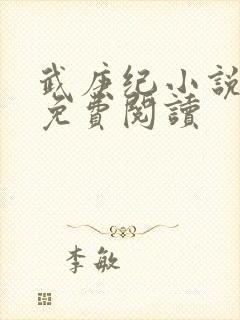 武庚纪小說
免費閱讀
李敏